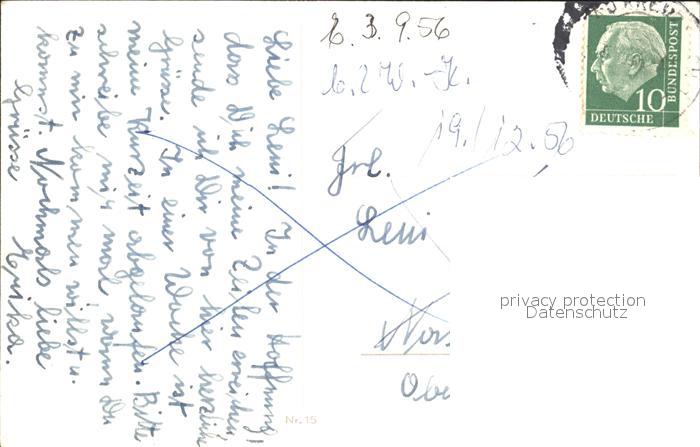 Liebe Leni! In der Hoffnung,
dass Dich meine Zeilen erreichen
sende ich Dir von hier herzliche
Grüsse. In einer Woche ist
meine Kurzeit abgelaufen. Bitte
schreibe mir mal, wann Du
zu mir kommen willst u.
kommst. Nochmals liebe
Grüsse Erika.
3. 9. 56
19./12. 56
Frl.
Leni
Nr. 15
10
DEUTSCHE
BUNDESPOST
privacy protection
Datenschutz